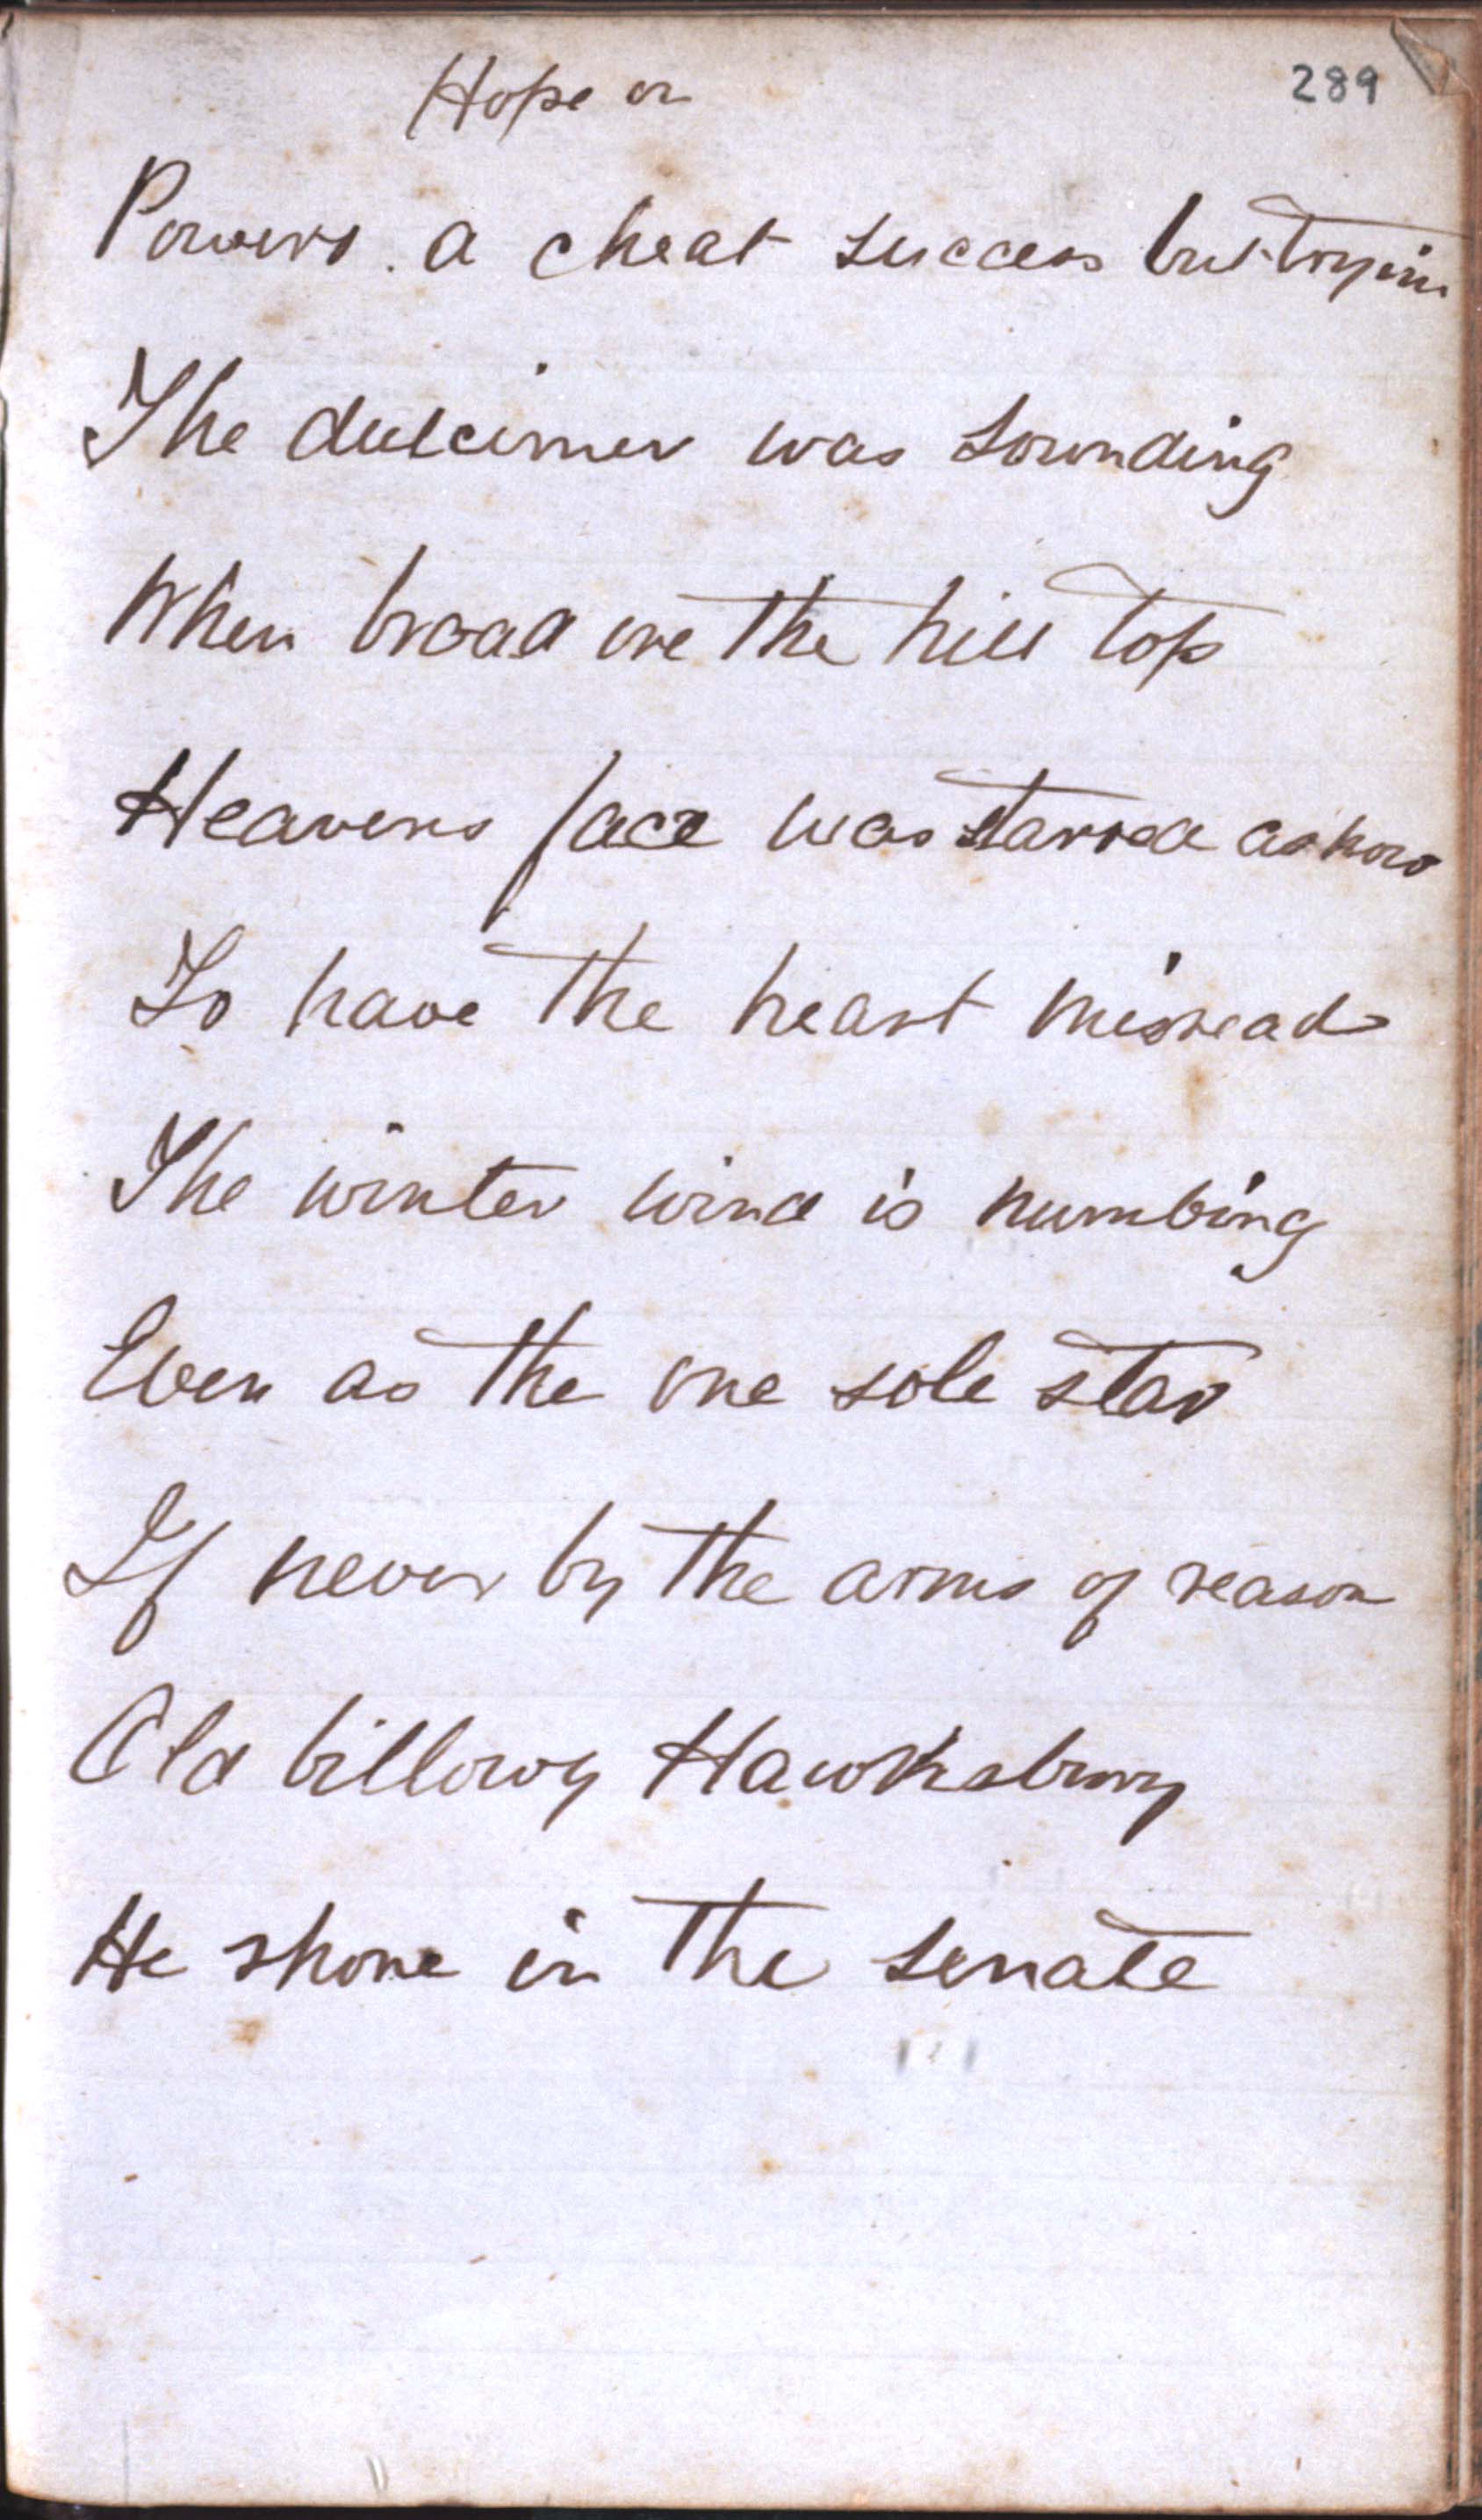 Hope on
289
Powers a cheat success but tryin
The dulcimer was sounding
When broad on the hill top
Heavens face was starred as now
To have the heart misread
The winter wind is numbing
Even as the one sole star
If never by the arms of reason
Old billowy Hawksbury
He shone in the senate